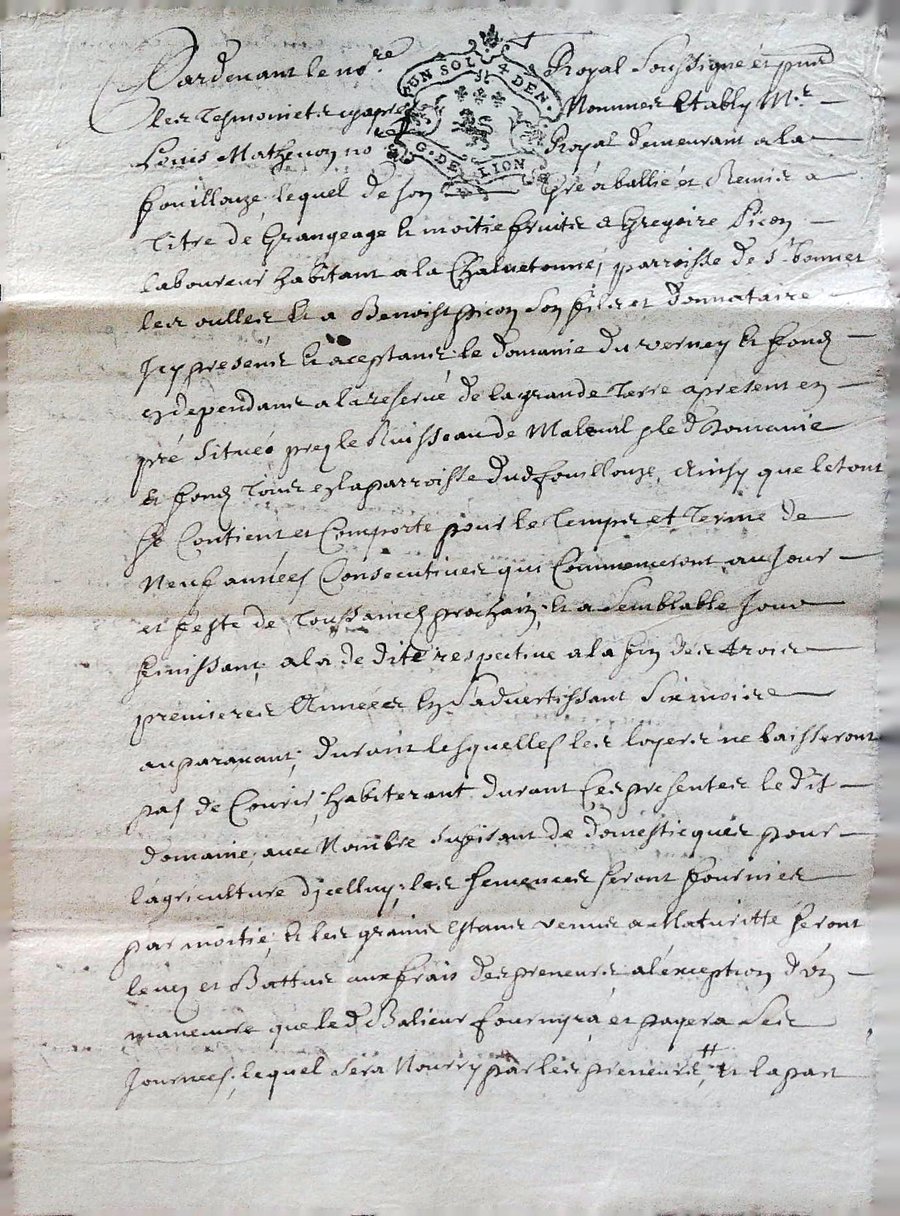 UN SOL 4 DEN.
G. DE LION
Pardevant le no.re Royal Soussigné et pnd
les Tesmointz cyapres Nommes Estably Mr.
Louis Mathevon no.re Royal demeurant a la
fouillouze, lequel de son gré a ballié et Remis a
Titre de Grangeage et moitie fruits a Gregoire Picon
laboureur habitant a la Chalvetonne, parroisse de st. bonnet
les oulles et a Benoist picon Son fils et donnataire
Icy presens et aceptans, le domaine du verney et fondz
en dependans a la reserve de la grande Terre apresent en
pré Située prez le Ruisseau de Maleval, led. Domaine
et fondz Tous en la parroisse dud. fouillouze, Ainsy que le tout
se Contient et Comporte pour le Temps et Terme de
Neuf années Consecutives qui Commenceront au Jour
et feste de Toussainctz prochain, et a Semblable Jour
finissant, a la dedite respective a la fin des trois
premieres Années En S'advertissant Six mois
auparavant, durant lesquelles les loyers ne laisseront
pas de Courir, habiteront durant Ces presentes le dit
domaine, avec Nombre Sufisant de domesticques pour
l'agriculture d'icelluy, les semences seront fournies
par moitié, et les grains Estans venus a Maturitté seront
levez et Battus aux frais des preneurs, a l'exception d'un
manoeuvre que led. Balieur fournira et payera Ses
Journees, lequel Sera Nourry par les preneurs, # et la part